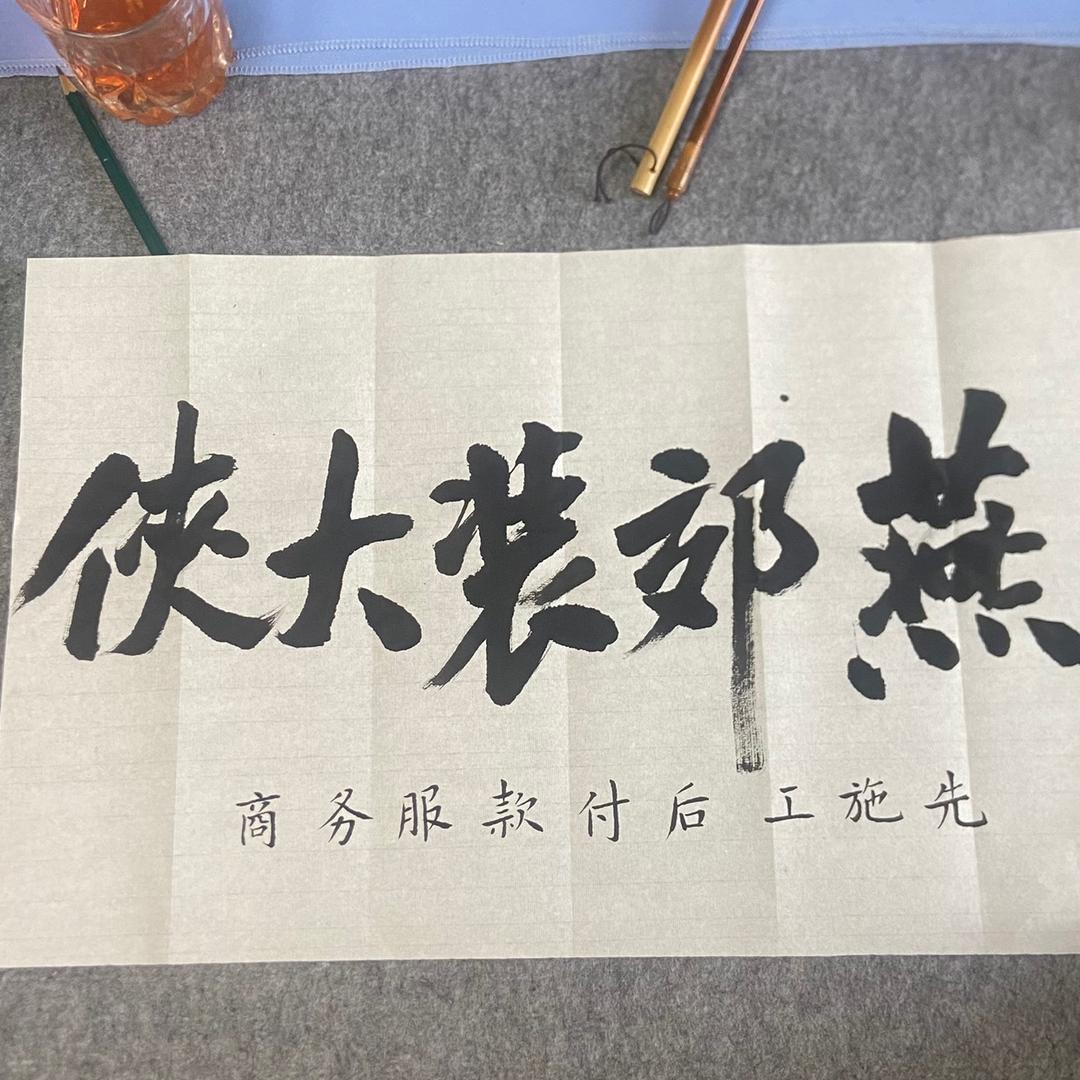 燕郊装大侠
先施工后付款服务商